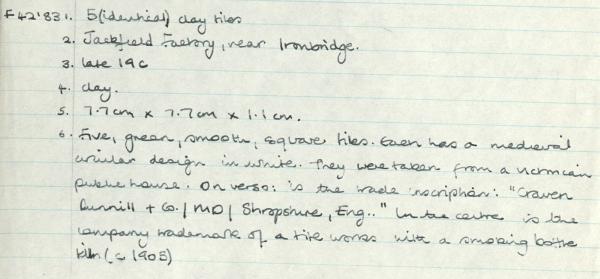 F42'83 1. 5 (identical) clay tiles
2. Jackfield Factory, near Ironbridge.
3. late 19c
4. clay.
5. 7.7cm x 7.7cm x 1.1cm.
6. Five, green, smooth, square tiles. Each has a medieval
circular design in white. They were taken from a Victorian
public house. On verso: is the trade inscription: "Craven
Dunnill + Co. / MD / Shropshire, Eng.." In the centre is the
company trademark of a tile works with a smoking bottle
kiln (c 1905)